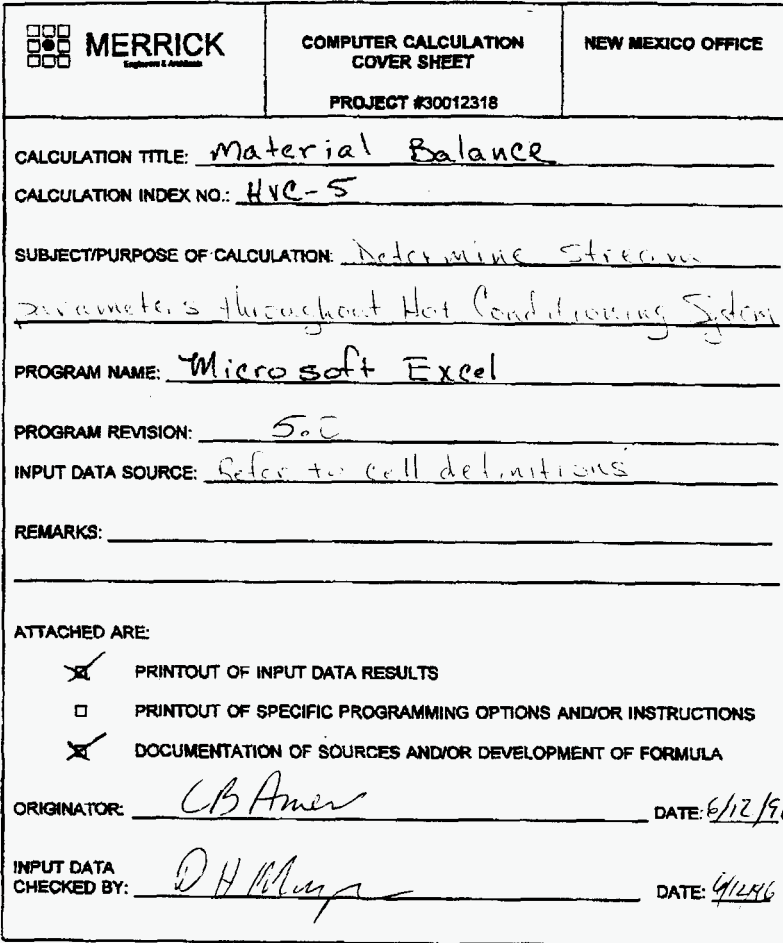 MERRICK
Engineers & Architects
COMPUTER CALCULATION
COVER SHEET
PROJECT #30012318
NEW MEXICO OFFICE
CALCULATION TITLE: Material Balance
CALCULATION INDEX NO.: HVC-5
SUBJECT/PURPOSE OF CALCULATION: Determine Stream
parameters throughout Hot Conditioning System
PROGRAM NAME: Microsoft Excel
PROGRAM REVISION: 5.0
INPUT DATA SOURCE: Refer to cell definitions
REMARKS:
ATTACHED ARE:
PRINTOUT OF INPUT DATA RESULTS
PRINTOUT OF SPECIFIC PROGRAMMING OPTIONS AND/OR INSTRUCTIONS
DOCUMENTATION OF SOURCES AND/OR DEVELOPMENT OF FORMULA
ORIGINATOR: CB Amer DATE: 6/12/9
INPUT DATA
CHECKED BY: D H DATE: 6/12/96